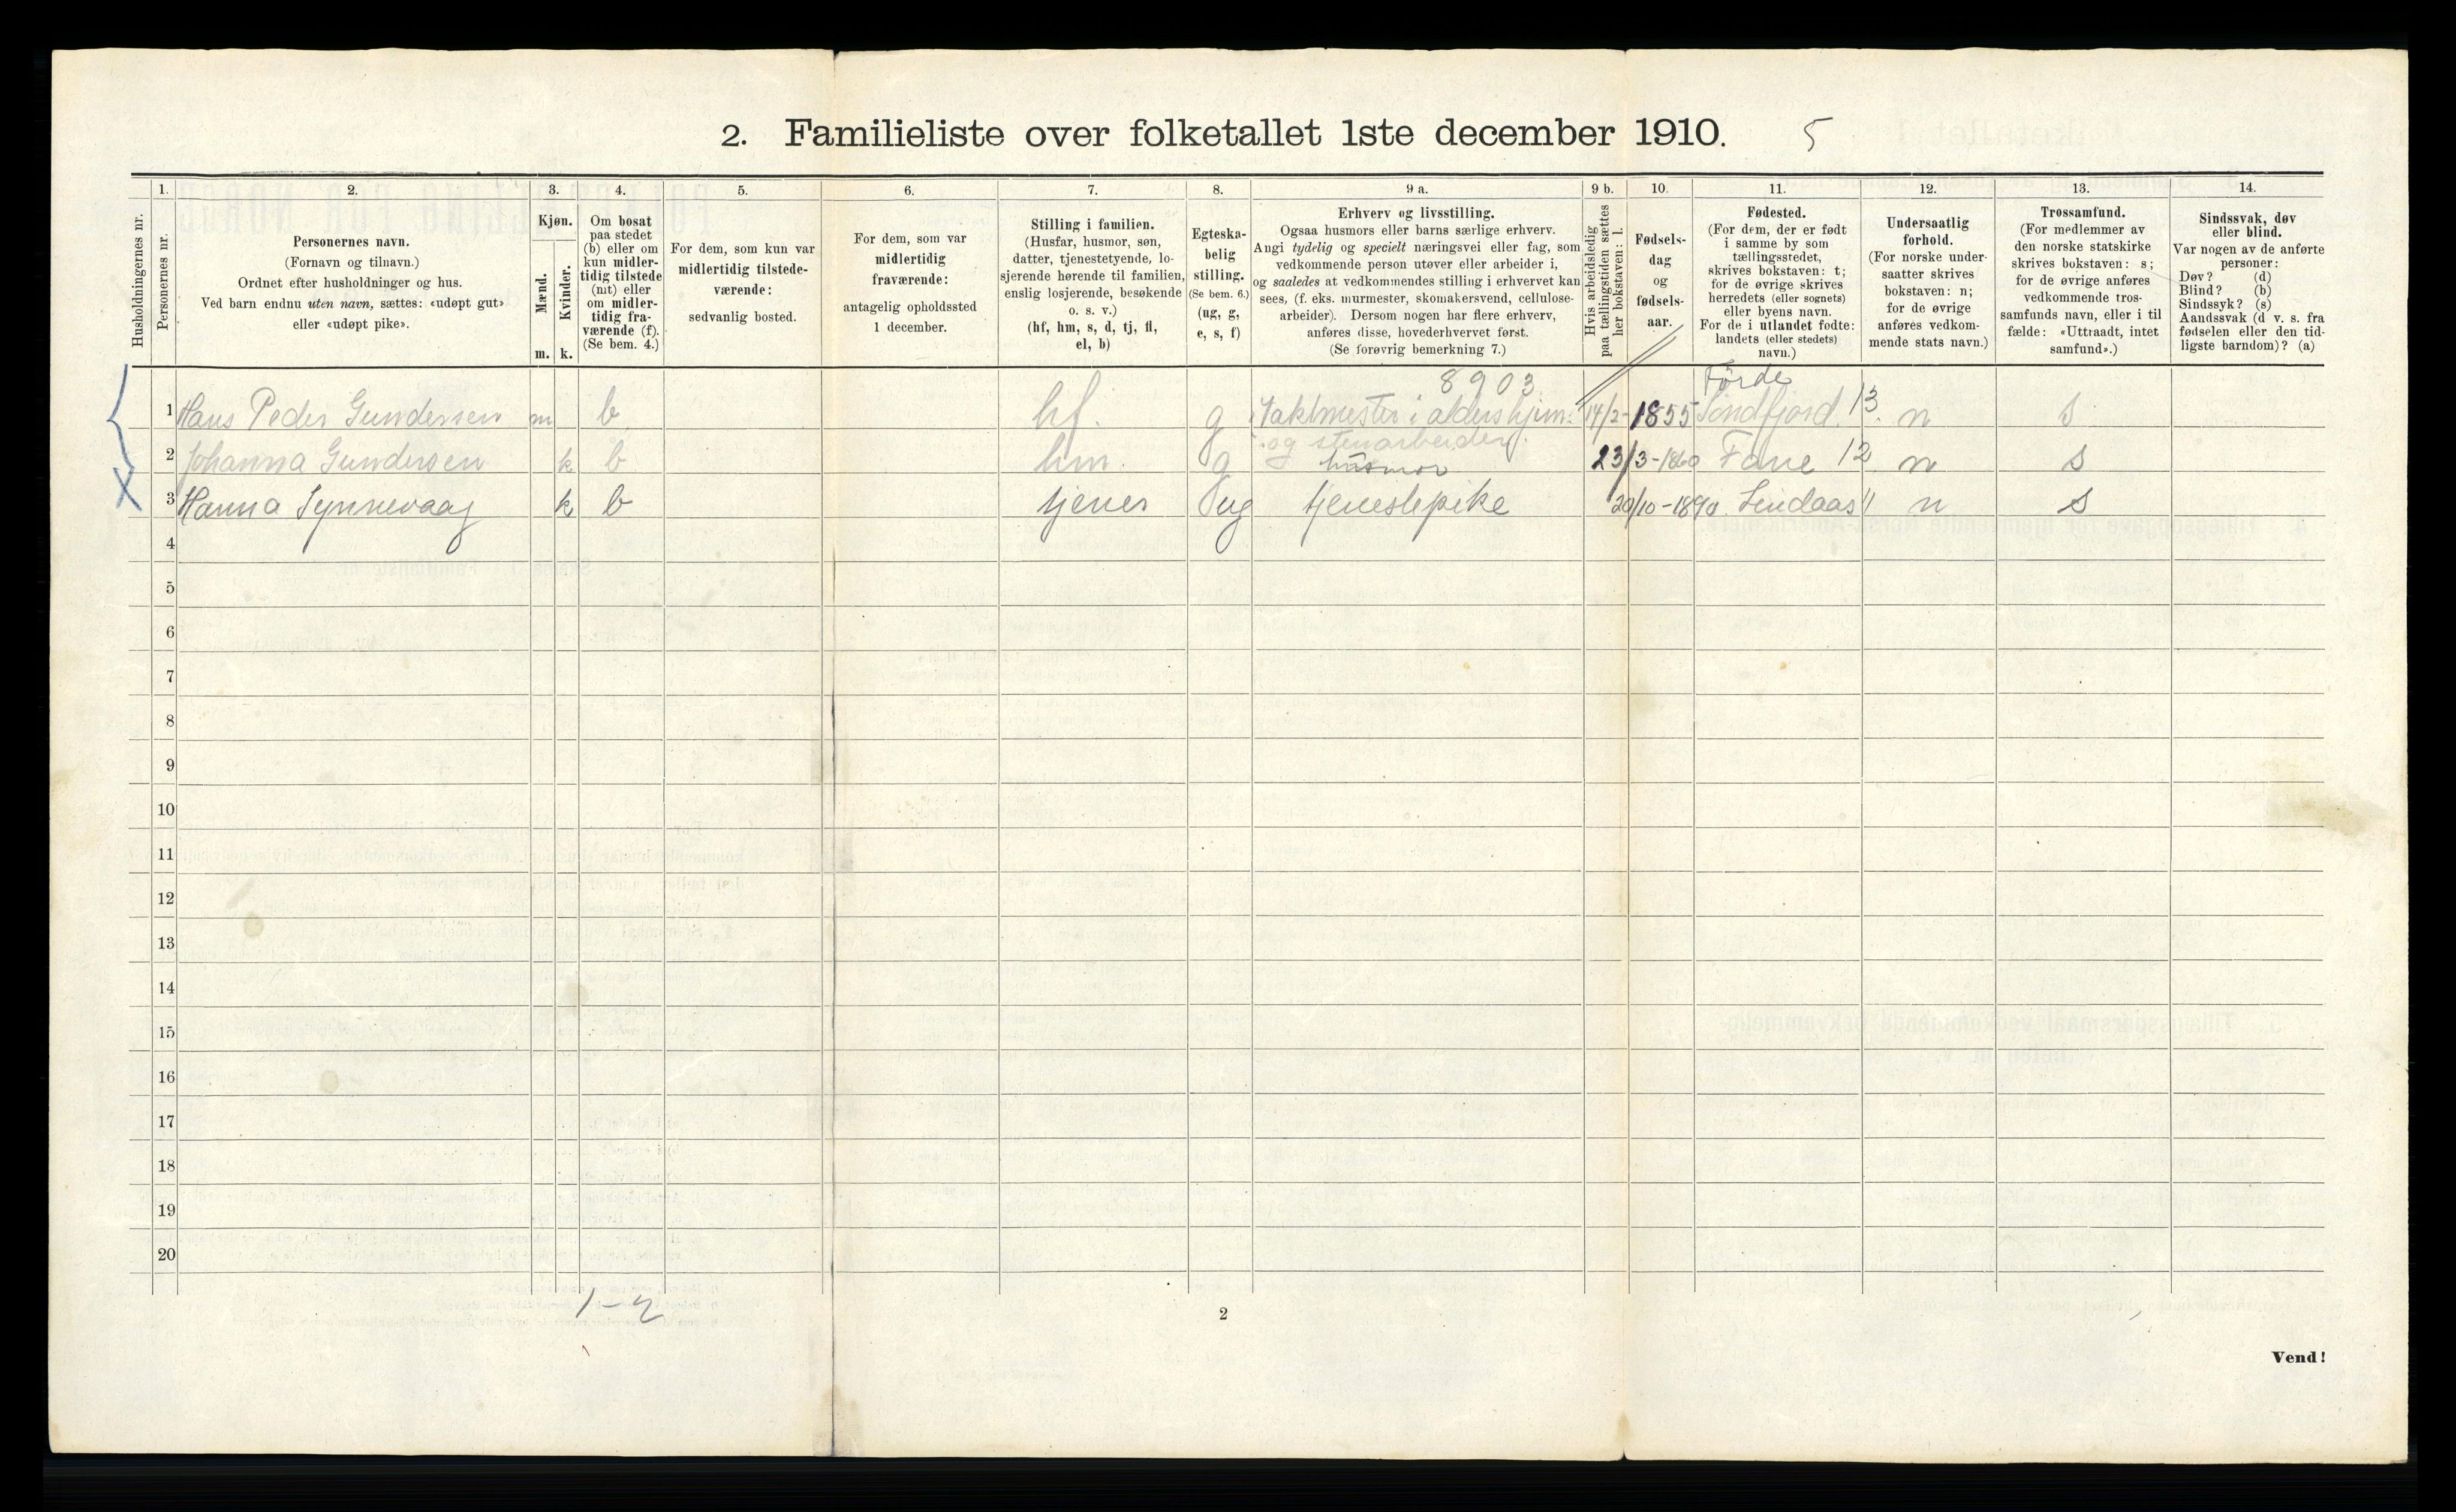 2. Familieliste over folketallet 1ste december 1910. 5
1. 2. 3. 4. 5. 6. 7. 8. 9 a. 9 b. 10. 11. 12. 13. 14.
Husholdningernes nr.
Personernes nr.
Personernes navn.
(Fornavn og tilnavn.)
Ordnet efter husholdninger og hus.
Ved barn endnu uten navn, sættes: «udøpt gut»
eller «udøpt pike».
Kjøn.
Mænd.
Kvinder.
m. k.
Om bosat
paa stedet
(b) eller om
kun midler-
tidig tilstede
(mt) eller
om midler-
tidig fra-
værende (f).
(Se bem. 4.)
For dem, som kun var
midlertidig tilstede-
værende:
sedvanlig bosted.
For dem, som var
midlertidig
fraværende:
antagelig opholdssted
1 december.
Stilling i familien.
(Husfar, husmor, søn,
datter, tjenestetyende, lo-
sjerende hørende til familien,
enslig losjerende, besøkende
o. s. v.)
(hf, hm, s, d, tj, fl,
el, b)
Egteska-
belig
stilling.
(Se bem. 6.)
(ug, g,
e, s, f)
Erhverv og livsstilling.
Ogsaa husmors eller barns særlige erhverv.
Angi tydelig og specielt næringsvei eller fag, som
vedkommende person utøver eller arbeider i,
og saaledes at vedkommendes stilling i erhvervet kan
sees, (f. eks. murmester, skomakersvend, cellulose-
arbeider). Dersom nogen har flere erhverv,
anføres disse, hovederhvervet først.
(Se forøvrig bemerkning 7.)
Hvis arbeidsledig
paa tællingstiden sættes
her bokstaven: l.
Fødsels-
dag
og
fødsels-
aar.
Fødested.
(For dem, der er født
i samme by som
tællingsstedet,
skrives bokstaven: t;
for de øvrige skrives
herredets (eller sognets)
eller byens navn.
For de i utlandet fødte:
landets (eller stedets)
navn.)
Undersaatlig
forhold.
(For norske under-
saatter skrives
bokstaven: n;
for de øvrige
anføres vedkom-
mende stats navn.)
Trossamfund.
(For medlemmer av
den norske statskirke
skrives bokstaven: s;
for de øvrige anføres
vedkommende tros-
samfunds navn, eller i til
fælde: «Uttraadt, intet
samfund».)
Sindssvak, døv
eller blind.
Var nogen av de anførte
personer:
Døv? (d)
Blind? (b)
Sindssyk? (s)
Aandssvak (d v. s. fra
fødselen eller den tid-
ligste barndom)? (a)
8903 Førde
1 Hans Peder Gundersen m b hf. g Vaktmester i aldershjem. 14/2-1855 Søndfjord. 13. n s
og stenarbeider.
2 Johanna Gundersen k b hm. g husmor 23/3-1860 Fane 12 n s
3 Hanna Synnevaag k b tjener ug tjenestepike 20/10-1890 Lindaas 11 n s
4
5
6
7
8
9
10
11
12
13
14
15
16
17
18
19
20
1-2
2
Vend!